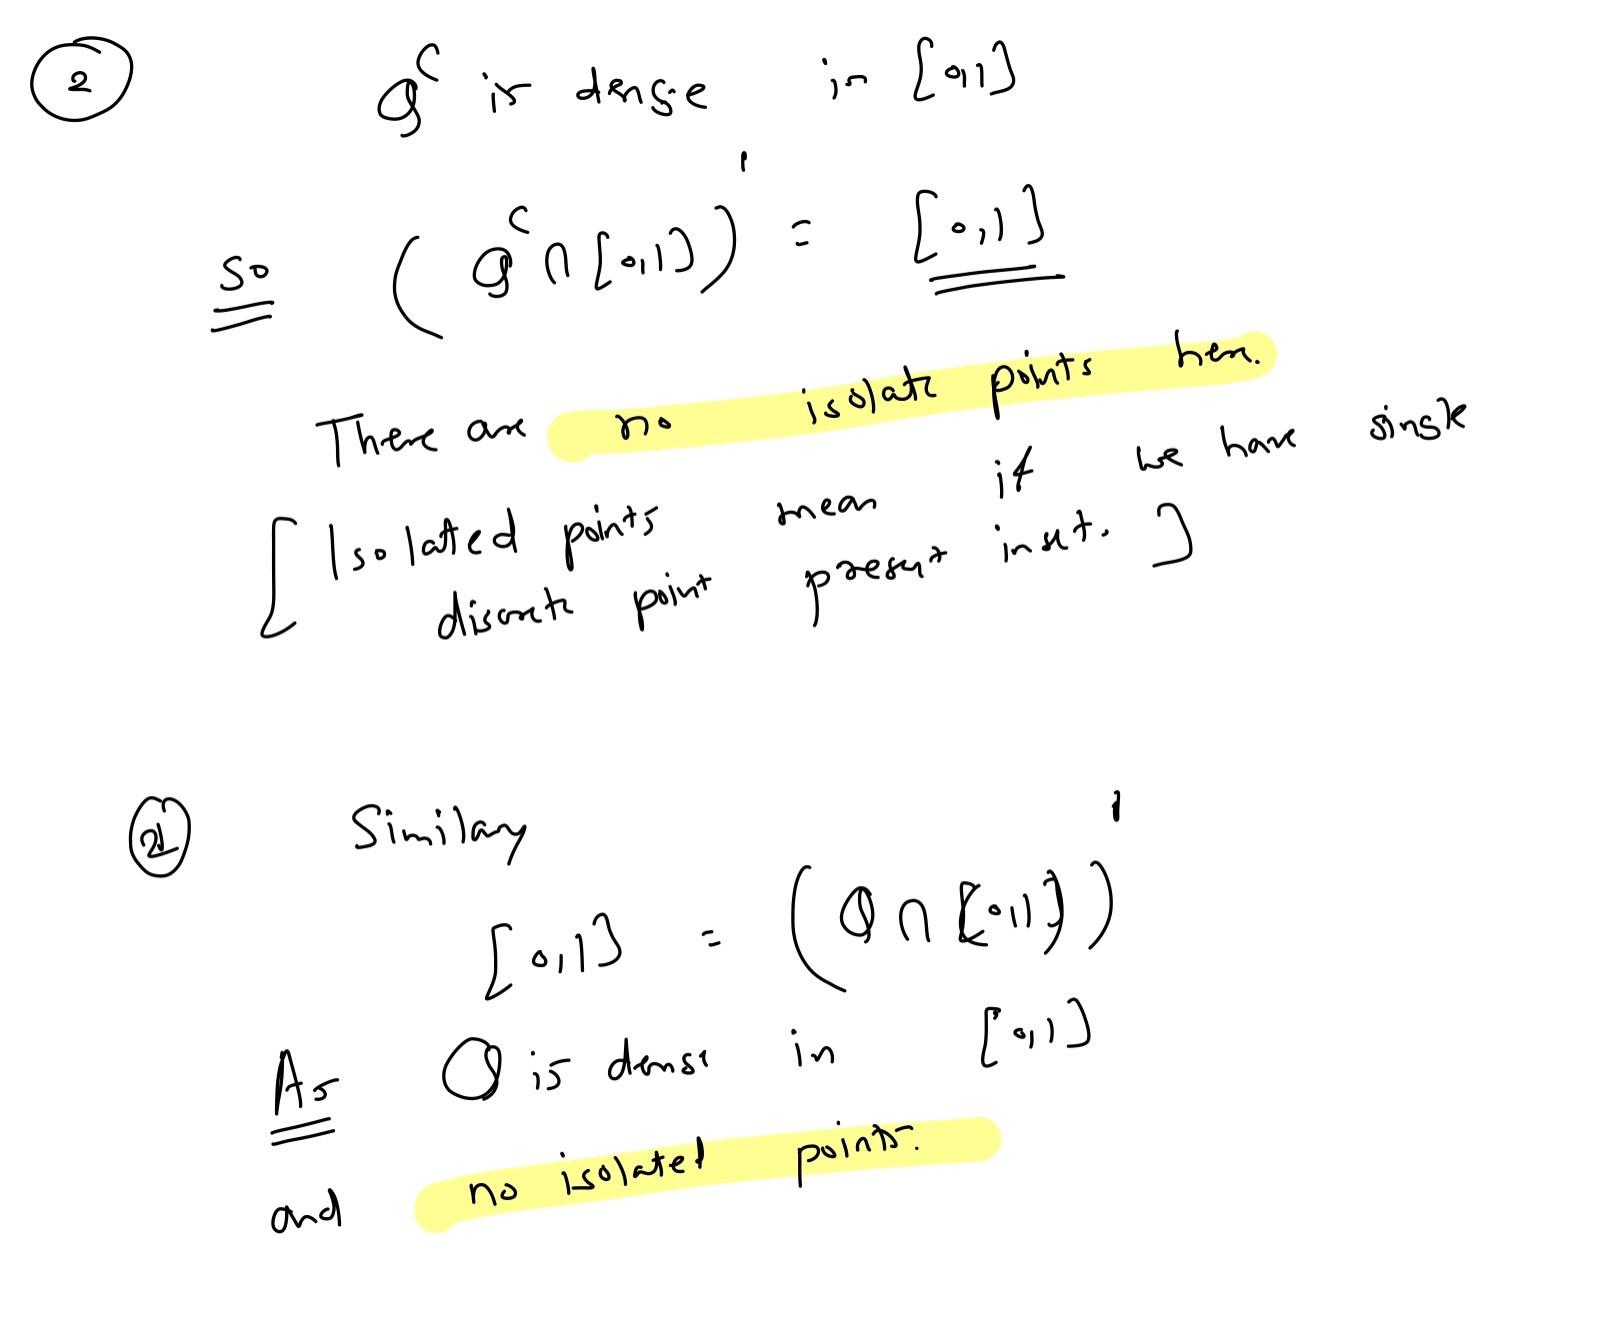 2
Q^c is dense in [0,1]
So (Q^c ∩ [0,1])' = [0,1]
There are no isolate points here.
[Isolated points mean if we have single
discrete point present in set.]
2'
Similary
[0,1] = (Q ∩ [0,1])'
As Q is dense in [0,1]
and no isolated points.